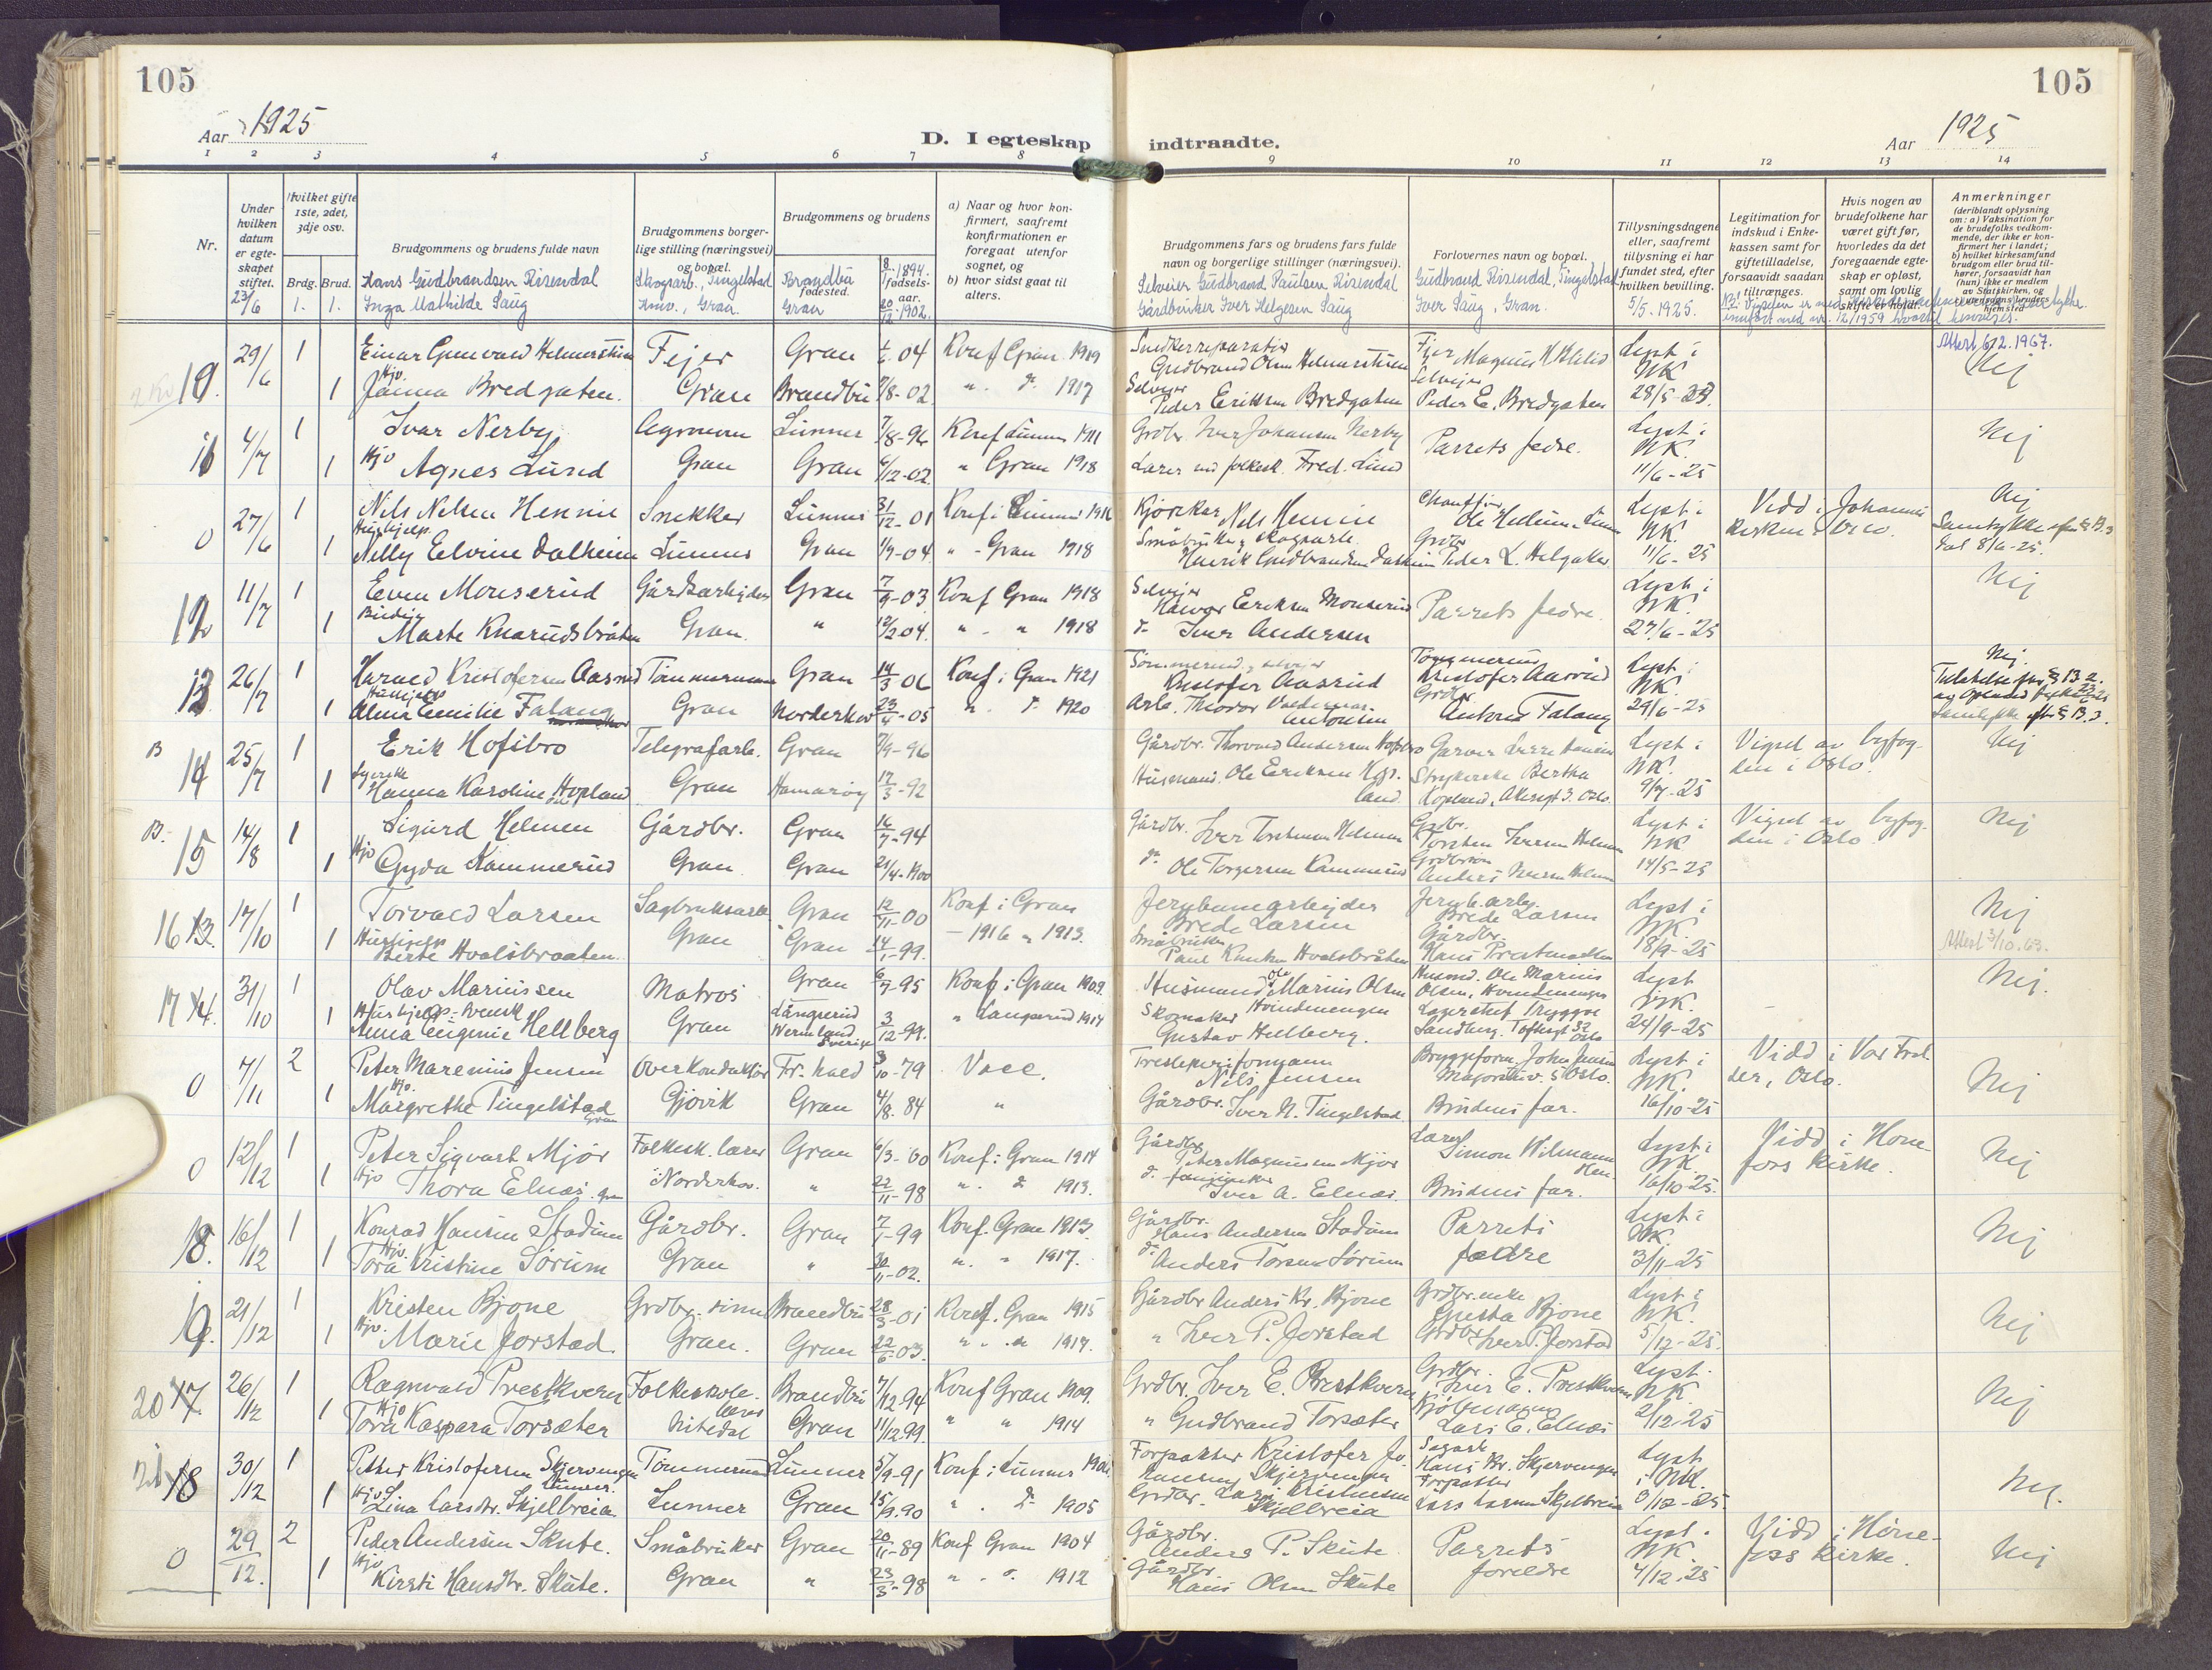 105
105
Aar 1925
D. I egteskap indtraadte.
Aar 1925
1 2 3 4 5 6 7 8 9 10 11 12 13 14
Nr.
Under hvilken datum er egteskapet stiftet.
Hvilket gifte 1ste, 2det, 3dje osv.
Brdg. Brud.
Brudgommens og brudens fulde navn
Brudgommens borgerlige stilling (næringsvei) og bopæl.
Brudgommens og brudens
fødested.
fødselsaar.
a) Naar og hvor konfirmert, saafremt konfirmationen er foregaat utenfor sognet, og
b) hvor sidst gaat til alters.
Brudgommens fars og brudens fars fulde navn og borgerlige stillinger (næringsvei).
Forlovernes navn og bopæl.
Tillysningsdagene eller, saafremt tillysning ei har fundet sted, efter hvilken bevilling.
Legitimation for indskud i Enkekassen samt for giftetilladelse, forsaavidt saadan tiltrænges.
Hvis nogen av brudefolkene har været gift før, hvorledes da det foregaaende egteskap er opløst, samt om lovlig skifte er holdt.
Anmerkninger
23/6 1. 1. Hans Gudbrandsen Risendal Skogarb., Tingelstad Brandbu 8/1 1894. Selveier Gudbrand Paulsen Risendal Gudbrand Risendal, Tingelstad
Inga Mathilde Saug Gran. Gran 20/12 1902. Gårdbruker Iver Helgesen Saug Iver Saug, Gran. 5/5. 1925.
Attest 6/2. 1967.
29/6 1 Einar Gunvald Helmerstuen Fejer Gran 04 Konf Gran 1919 Gudbrand Olsen Helmerstuen Lyst i NK Nej
Hjv. Janna Bredgaten. 1 Gran Brandbu 7/8-02 1917 Selvejer Peder Eriksen Bredgaten Peder E. Bredgaten 28/5
4/7 1 Ivar Nerby Lunner 7/8-96 Konf Lunner 1911 Grdbr. Iver Johansen Nerby Parrets fedre. Lyst i NK. Nej
1 Hjv Agnes Lund Gran Gran 6/12-02 " Gran 1918 Fred. Lund 11/6-25
0 27/6 1 Nils Nelsen Hennie Snekker Lunner 31/12-01 Konf i Lunner 1916 Nels Hennie Lyst i NK. Vidd i Johannes kirken Oslo. Nej
1 Hushjelp. Nelly Elvine Dalheim Lunner Gran 1/9-04 " - Gran 1918 Henrik Gudbrandsen Dalheim Peder L. Helgaker 11/6-25
12 11/7 1 Even Monserud Gårdsarbejder Gran 7/9-03 Konf Gran 1918 Selvejer Halvor Eriksen Monserud Parrets fedre. Lyst i NK. Nej
1 Budeje Marte Knarudsbråten Gran. " 12/2 04. " " 1918 Iver Andersen 27/6-25
13 26/7 1 Harald Kristofersen Aasrud Tømmermann Gran 14/3 06 Konf i Gran 1921 Kristofer Aasrud Kristofer Aasrud Lyst i NK. Nej.
1 Hushjelp Alma Emilie Falang Gran Norderhov 23/4-05 1920 Arb. Theodor Valdemar Antonsen Anton Falang 29/6-25
B 14 25/7 1 Erik Hofsbro Telegrafarb. Gran 7/9-96 Gårdbr. Thorvald Andersen Hofsbro Lyst i NK. Vigsel av byfogden i Oslo. Nej
1 Syerske Hanna Karoline Hopland Gran Hamarøy 17/3-92 Husmand. Ole Eriksen Hopland Strykerske Bertha Hopland, Akersgt 3. Oslo. 9/7-25
B. 15 14/8 1 Sigurd Helmen Gårdbr. Gran 16/7-94 Gårdbr. Iver Torstensen Helmen Grdbr. Torsten Iversen Helmen Lyst i NK Vigsel av byfogden i Oslo Nej
1 Hjv Gyda Kammerud Gran Gran 21/4-1900 Ole Torgersen Kammerud Anders Iversen Helmen 14/5-25
16 17/10 1 Torvald Larsen Sagbruksarb. Gran 12/11-00 Konf i Gran Jernbanearbejder Brede Larsen Jernb. arb. Brede Larsen Lyst i NK. Nej
1 Hushjelp Berte Hvalsbraaten. Gran Gran 14/1-99. - 1916 1913. Småbruker Paul Knutsen Hvalsbråten Gårdbr. Hans Prestmoellen 18/9-25 Attest 3/10.63.
17 31/10 1 Olav Mariussen Matros Gran 6/7-95 Konf i Gran 1909. Husmand Ole Marius Olsen Hvindenengen Husmd. Ole Marius Olsen, Hvindenengen Lyst NK. Nej.
1 Hushjelp: svensk Anna Eugenie Hellberg Gran Långserud Wermland Sverige 3/12-99. " Langserud 1914 Skomaker Gustav Hellberg. Lagerchef Trygve Sandberg. Toftesgt 32 Oslo 24/9-25
0 7/11 2 Peter Marenius Jensen Overkonduktør Fr. hald 3/10-79 Vace. Nils Jensen Bryggeform. John Jensen Oslo. Lyst i NK. Vidd i Vor Frelser, Oslo. Nej
1 Hjv. Margrethe Tingelstad Gran Gjøvik Gran 4/8. 84 " Gårdbr. Iver N. Tingelstad Brudens far. 16/10-25
0 12/12 1 Peter Sigvart Mjør Folkesk. lærer Gran 6/3-00 Konf i Gran 1914 Gårdbr. Peter Magnussen Mjør Lærer Simon Wilmann Lyst i NK Vidd i Hønefoss kirke. Nej
1 Hjv Thora Elnæs. Gran Norderhov. " 22/11-98 1913. Iver A. Elnæs. Brudens far. 16/10-25.
18. 16/12 1 Konrad Hansen Stadum Gårdbr. Gran 7/1-99 Konf. Gran 1913 Gårdbr. Hans Andersen Stadum Parrets fædre Lyst i NK. Nej
1 Hjv. Tora Kristine Sørum Gran " 30/11-02. " " 1917. Anders Torsen Sørum 3/11-25
19. 21/12 1 Kristen Bjone Grdbr. sønn Brandbu 28/3-01 Konf. Gran 1915 Gårdbr Anders Kr. Bjone Grdbr. enke Gusta Bjone Lyst i NK. Nej
1 Hjv. Marie Jorstad. Gran. Gran 22/6-03. 1917. " Iver P. Jorstad Grdbr Iver P. Jorstad 5/12-25.
20 26/12 1 Ragnvald Prestkvern Folkeskolelærer Brandbu 7/12-94 Konf Gran 1909. Grdbr. Iver E. Prestkvern Grdbr. Iver E. Prestkvern Lyst. NK. Nej
1 Hjv Tora Kaspara Torsæter Nitedal Gran 11/12 99. " " 1914 " Gudbrand Torsæter Kjøbmann Lars E. Elnæs 2/12-25
30/12 1 Petter Kristofersen Skjervengen Lunner. Tømmermand Lunner 5/9-91 Konf i Lunner Forpakter Kristofer Johansen Skjervengen Hans Kr. Skjervengen Lyst i NK. Nej.
1 Hjv. Lina Larsdtr. Skjelbreia Lunner Gran 15/9. 90 1905 Grdbr. Lars Kristiansen Skjelbreia Lars Larsen Skjelbreia /12-25.
0 29/12. 2 Peder Andersen Skute. Småbruker Gran 20/11-89 Konf Gran 1904 Gårdbr. Anders P. Skute Parrets foreldre Lyst. NK Vidd i Hønefoss kirke. Nej
1 Hjv Kirsti Hansdtr. Skute. Gran " 23/3-98 1912 Gårdbr. Hans Olsen Skute 4/12-25